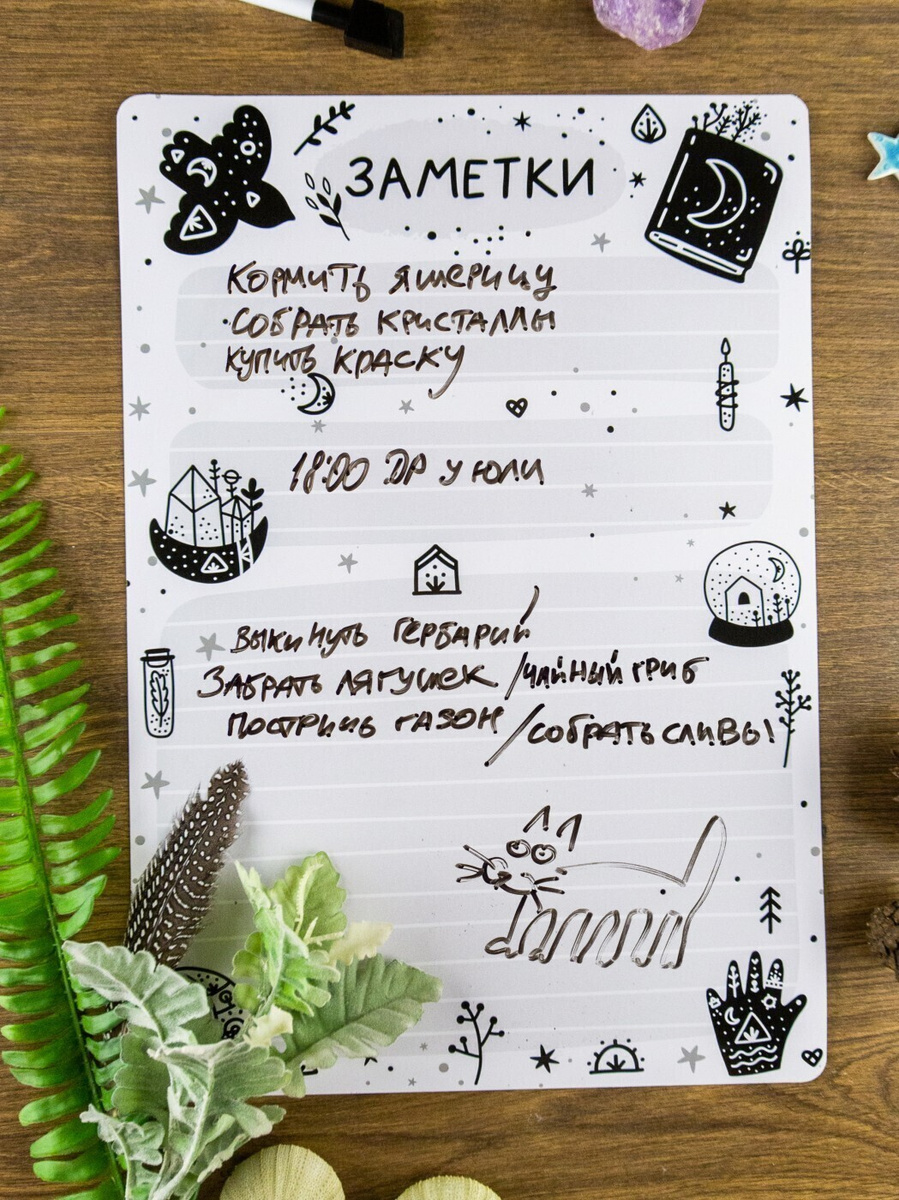 ЗАМЕТКИ
КОРМИТЬ ЯЩЕРИЦУ
СОБРАТЬ КРИСТАЛЛЫ
КУПИТЬ КРАСКУ
18:00 ДР У ЮЛИ
ВЫКИНУТЬ ГЕРБАРИЙ
ЗАБРАТЬ ЛЯГУШЕК / ЧАЙНЫЙ ГРИБ
ПОСТРИЧЬ ГАЗОН / СОБРАТЬ СЛИВЫ!